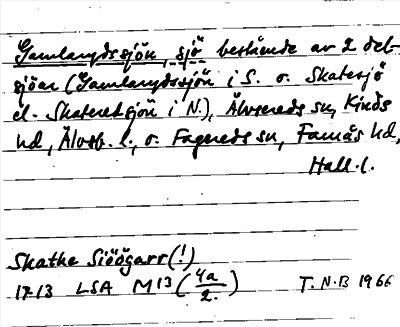 Gamlarydssjön, sjö bestående av 2 del-
sjöar (Gamlarydssjön i S. o. Skatesjö
el. Skateretsjön i N.), Älvsereds sn, Kinds
hd, Älvsb. l., o. Fagereds sn, Faurås hd,
Hall. l.
Skathe Siöögarr (!)
1713 LSA M13 (4a/2.) T.N.B 1966